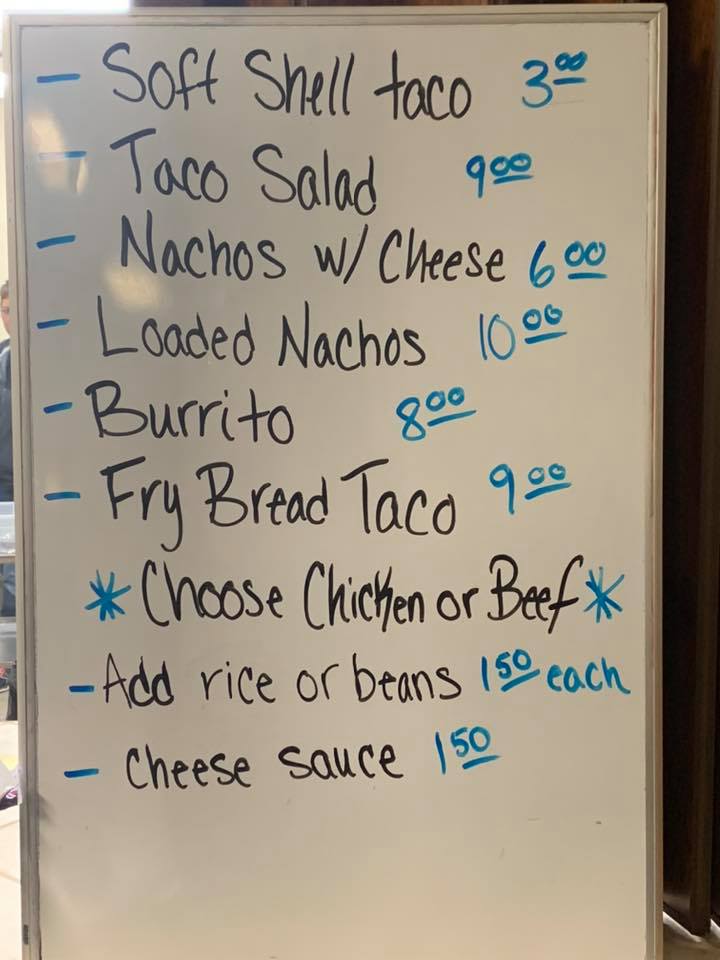 - Soft Shell taco 3.00
- Taco Salad 9.00
- Nachos w/ Cheese 6.00
- Loaded Nachos 10.00
- Burrito 8.00
- Fry Bread Taco 9.00
* Choose Chicken or Beef *
- Add rice or beans 1.50 each
- Cheese sauce 1.50